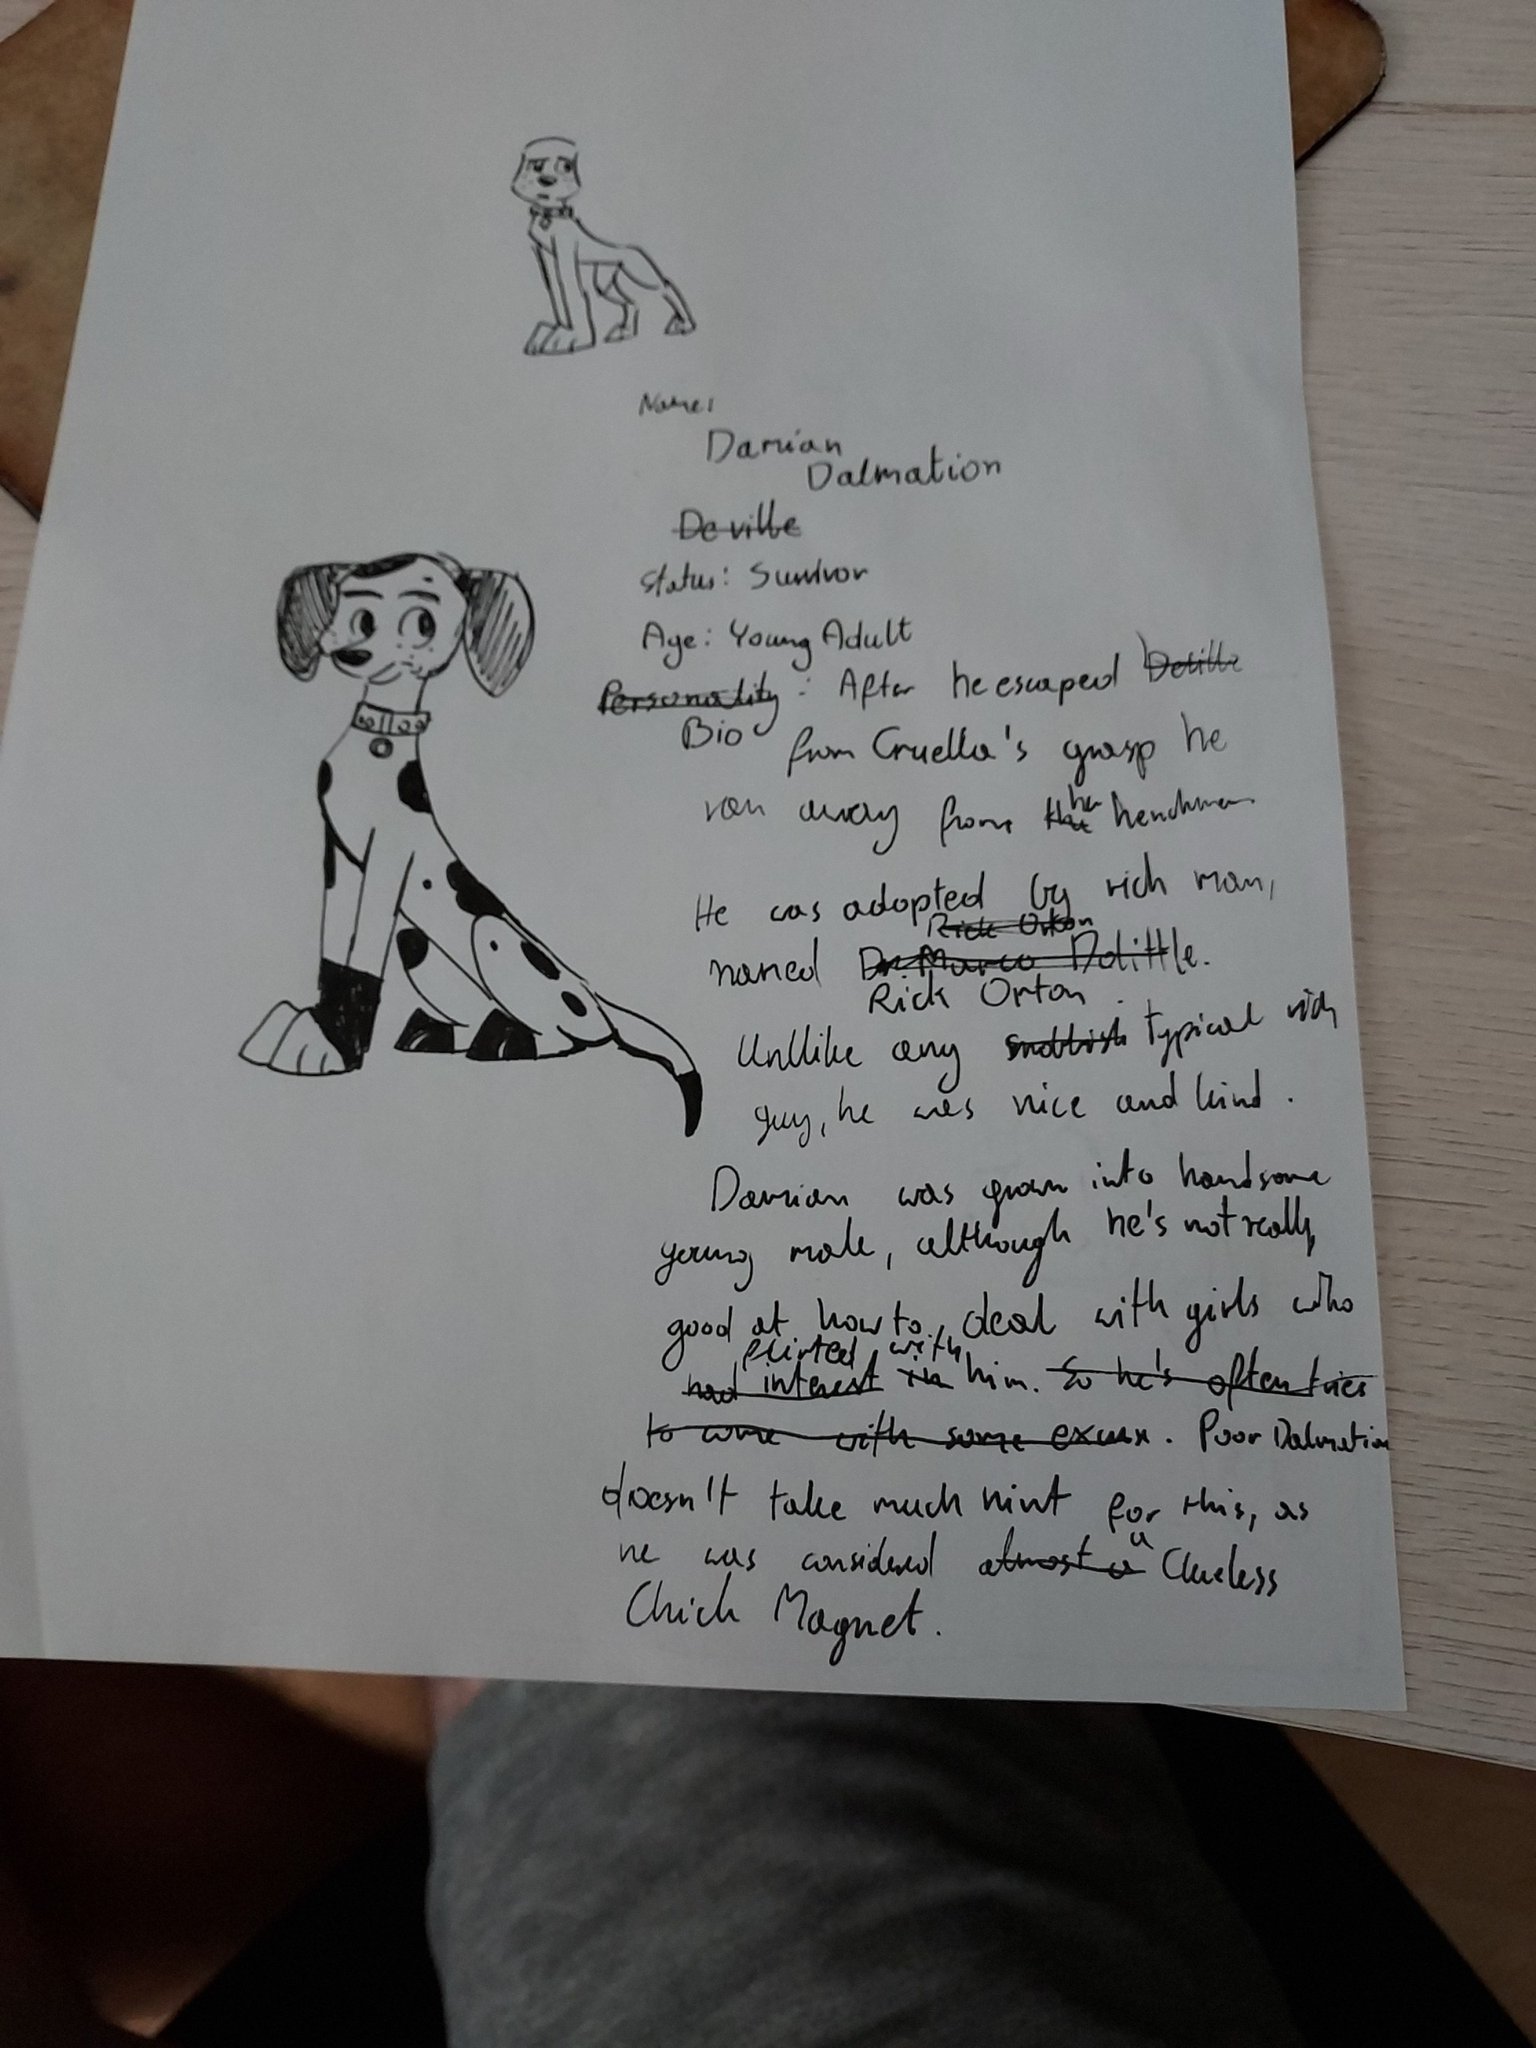 Name:
Damian
Dalmation
Deville
Status: Survivor
Age: Young Adult
Personality : After he escaped Deville
Bio
from Cruella's grasp he
ran away from the her henchmen
He was adopted by rich man,
Rick Orton
named Dr. Marco Dolittle.
Rick Orton.
Unllike any snobbish typical rich
guy, he was nice and kind.
Damian was grown into handsome
young male, although he's not really
good at how to deal with girls who
flirted with
had interest in him. So he's often tries
to come with some excuse. Poor Dalmation
doesn't take much hint for this, as
he was considered almost a a Clueless
Chick Magnet.